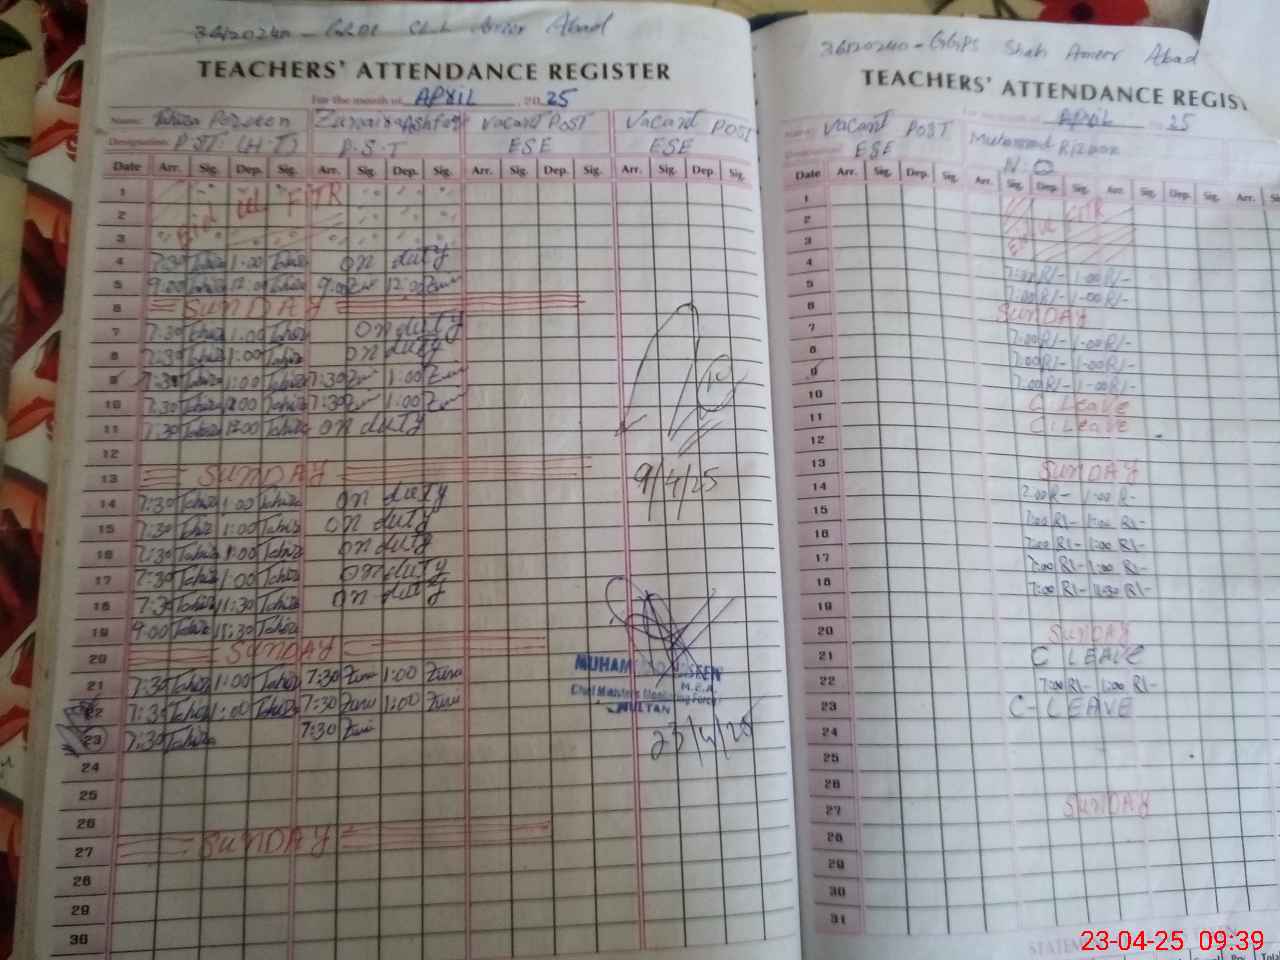 36120240 - GGPS Shah Ameer Abad
TEACHERS' ATTENDANCE REGISTER
For the month of APRIL, 2025
Name: Tahira Parveen Zunaira Ashfaq Vacant POST Vacant POST
Designation: P.ST. (H.T) P.S.T ESE ESE
Date Arr. Sig. Dep. Sig. Arr. Sig. Dep. Sig. Arr. Sig. Dep. Sig. Arr. Sig. Dep. Sig.
1 Eid ul FITR
2
3
4 7:30 Tahira 1:00 Tahira on duty
5 9:00 Tahira 12:00 Tahira 9:00 Zun 12:00 Zun
6 SUNDAY
7 7:30 Tahira 1:00 Tahira on duty
8 7:30 Tahira 1:00 Tahira on duty
9 7:30 Tahira 1:00 Tahira 7:30 Zun 1:00 Zun
10 7:30 Tahira 1:00 Tahira 7:30 Zun 1:00 Zun
11 7:30 Tahira 12:00 Tahira on duty
12
13 SUNDAY 9/4/25
14 7:30 Tahira 1:00 Tahira on duty
15 7:30 Tahira 1:00 Tahira on duty
16 7:30 Tahira 1:00 Tahira on duty
17 7:30 Tahira 1:00 Tahira on duty
18 7:30 Tahira 11:30 Tahira on duty
19 9:00 Tahira Tahira
20 SUNDAY
21 7:30 Tahira 1:00 Tahira 7:30 Zuni 1:00 Zuni
22 7:30 Tahira 1:00 Tahira 7:30 Zuni 1:00 Zuni
23 7:30 Tahira 7:30 Zuni
MUHAM
M.E.A.
Chief Minister's Monitoring Force
MULTAN
23/4/25
24
25
26
27 SUNDAY
28
29
30
36120240 - GGPS Shah Ameer Abad
TEACHERS' ATTENDANCE REGIST
For the month of April 25
Name: Vacant POST Muhammad Rizwan
ESE N.Q
Date Arr. Sig. Dep. Sig. Arr. Sig. Dep. Sig. Arr. Sig. Dep. Sig. Arr. Si
1 FITR
2
3
4 7:00 R/- 1-00 R/-
5 7:00 R/- 1-00 R/-
6 SUNDAY
7 7:00 R/- 1-00 R/-
8 7:00 R/- 1-00 R/-
9 7:00 R/- 1-00 R/-
10 C. Leave
11 C. Leave
12
13 SUNDAY
14 7:00 R- 1:00 R-
15 7:00 R/- 1:00 R/-
16 7:00 R/- 1:00 R/-
17 7:00 R/- 1:00 R/-
18 7:00 R/- 11:30 R/-
19
20 SUNDAY
21 C LEAVE
22 7:00 R/- 1:00 R/-
23 C-LEAVE
24
25
26
27 SUNDAY
28
29
30
31
23-04-25 09:39